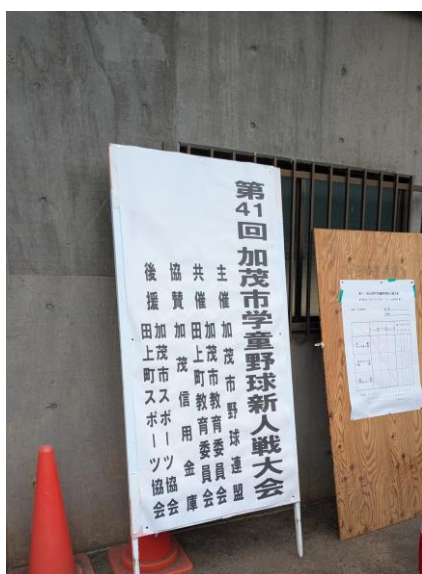 第41回 加茂市学童野球新人戦大会
主催 加茂市野球連盟
共催 加茂市教育委員会
田上町教育委員会
協賛 加茂信用金庫
後援 加茂市スポーツ協会
田上町スポーツ協会